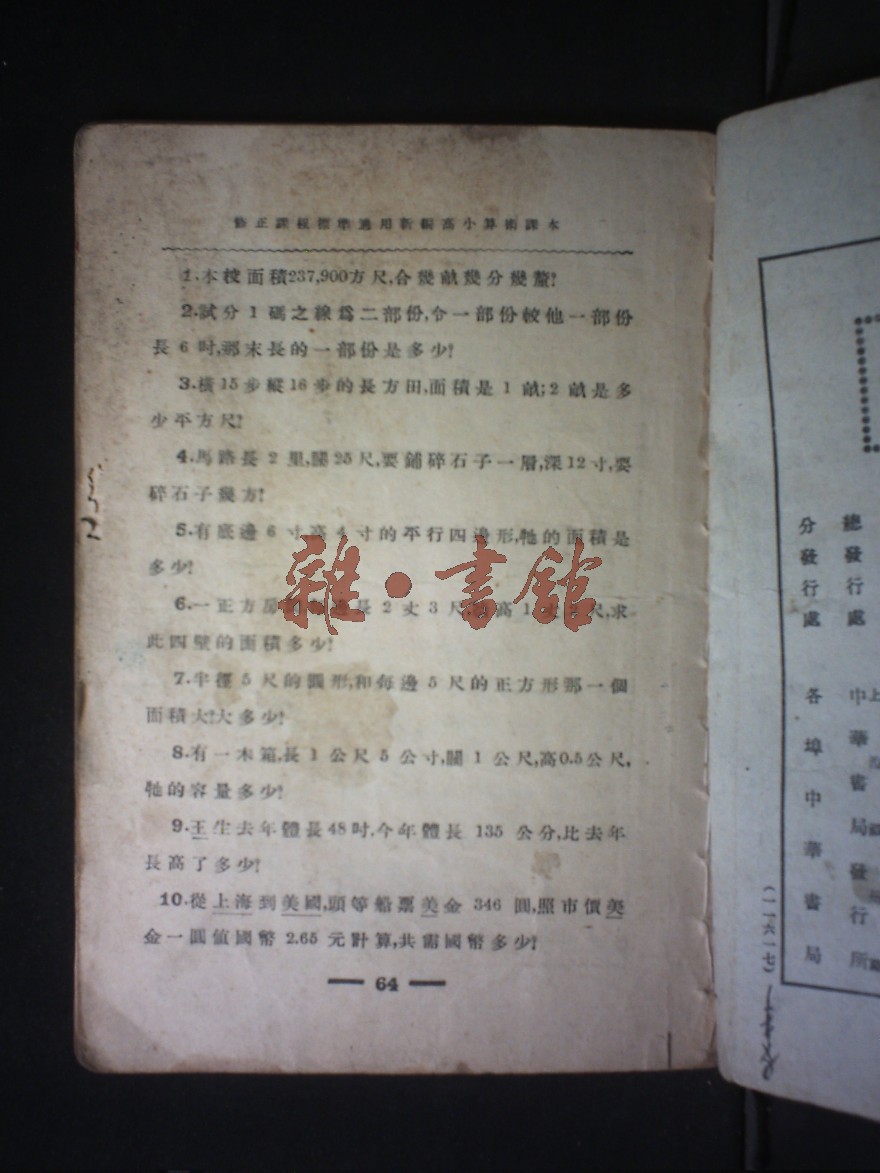 修正課程標準適用新編高小算術課本
1.本校面積237,900方尺,合幾畝幾分幾釐?
2.試分1碼之線爲二部份,令一部份較他一部份
長6吋,那末長的一部份是多少?
3.橫15步縱16步的長方田,面積是1畝;2畝是多
少平方尺?
4.馬路長2里,闊25尺,要鋪碎石子一層,深12寸,要
碎石子幾方?
5.有底邊6寸高4寸的平行四邊形,牠的面積是
多少?
6.一正方房 長2丈3尺, 高1丈 尺,求
此四壁的面積多少?
7.半徑5尺的圓形,和每邊5尺的正方形那一個
面積大?大多少?
8.有一木箱,長1公尺5公寸,闊1公尺,高0.5公尺,
牠的容量多少?
9.王生去年體長48吋,今年體長135公分,比去年
長高了多少?
10.從上海到美國,頭等船票美金346圓,照市價美
金一圓值國幣2.65元計算,共需國幣多少?
64
雜·書館
總發行處 中華書局發行所
分發行處 各埠中華書局
(一一六一七)